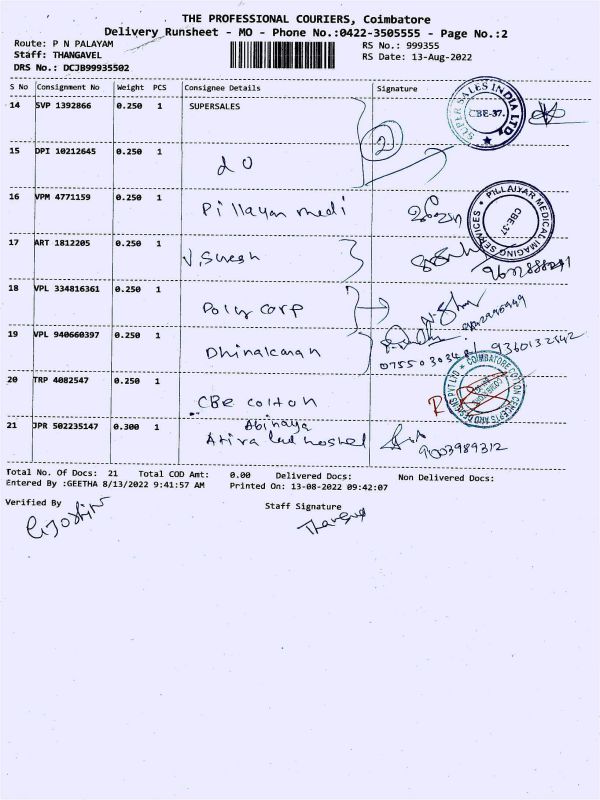 THE PROFESSIONAL COURIERS, Coimbatore
Delivery Runsheet - MO - Phone No.:0422-3505555 - Page No.:2
Route: P N PALAYAM
RS No.: 999355
Staff: THANGAVEL
RS Date: 13-Aug-2022
DRS No.: DCJB99935502
S No Consignment No Weight PCS Consignee Details Signature
14 SVP 1392866 0.250 1 SUPERSALES
2
SUPER SALES INDIA LTD.
CBE-37.
15 DPI 10212645 0.250 1 do
16 VPM 4771159 0.250 1 Pillayan medi
PILLAIYAR MEDICAL IMAGING SERVICES
CBE-37
17 ART 1812205 0.250 1 V. Suresh
18 VPL 334816361 0.250 1 Poly corp
19 VPL 940660397 0.250 1 Dhinakaran
9360132542
20 TRP 4082547 0.250 1 CBE cotton
COIMBATORE COTTON CONCEPTS AND DESIGNS PVT LTD
21 JPR 502235147 0.300 1 Abinaya
9003989312
Total No. Of Docs: 21 Total COD Amt: 0.00 Delivered Docs: Non Delivered Docs:
Entered By :GEETHA 8/13/2022 9:41:57 AM Printed On: 13-08-2022 09:42:07
Verified By
Staff Signature